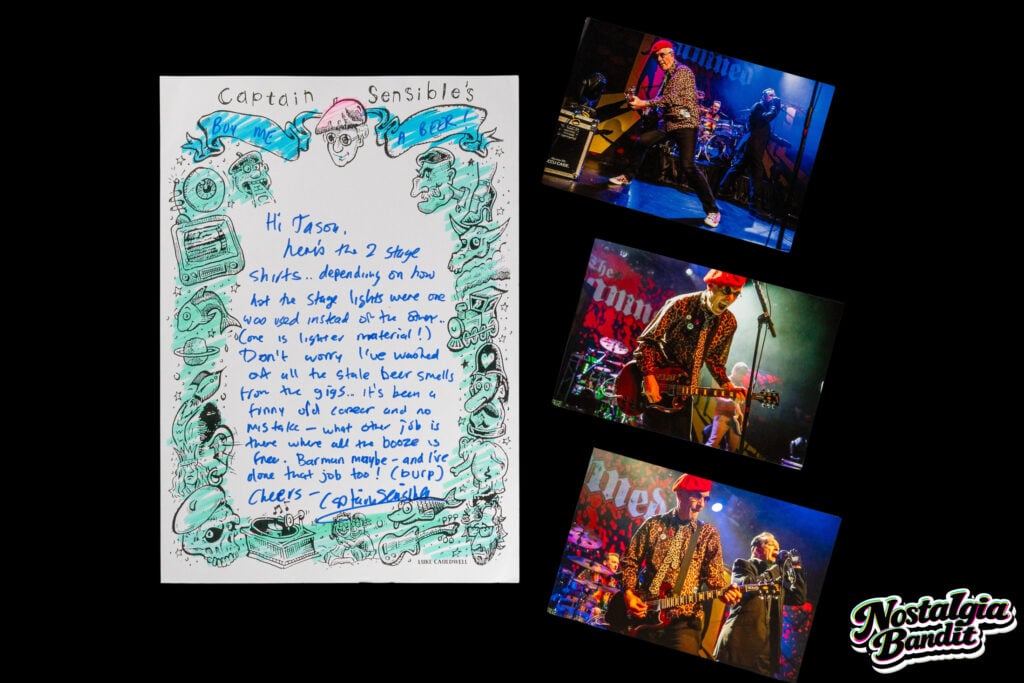 Captain Sensible's
BUY ME A BEER!
Hi Jason,
here's the 2 stage
shirts.. depending on how
hot the stage lights were one
was used instead of the other..
(one is lighter material!)
Don't worry I've washed
off all the stale beer smells
from the gigs... it's been a
funny old career and no
mistake – what other job is
there where all the booze is
free. Barman maybe – and I've
done that job too! (burp)
Cheers – Captain Sensible
LUKE CAULDWELL
Damned
CASE
The
amned
amned
Nostalgia
Bandit